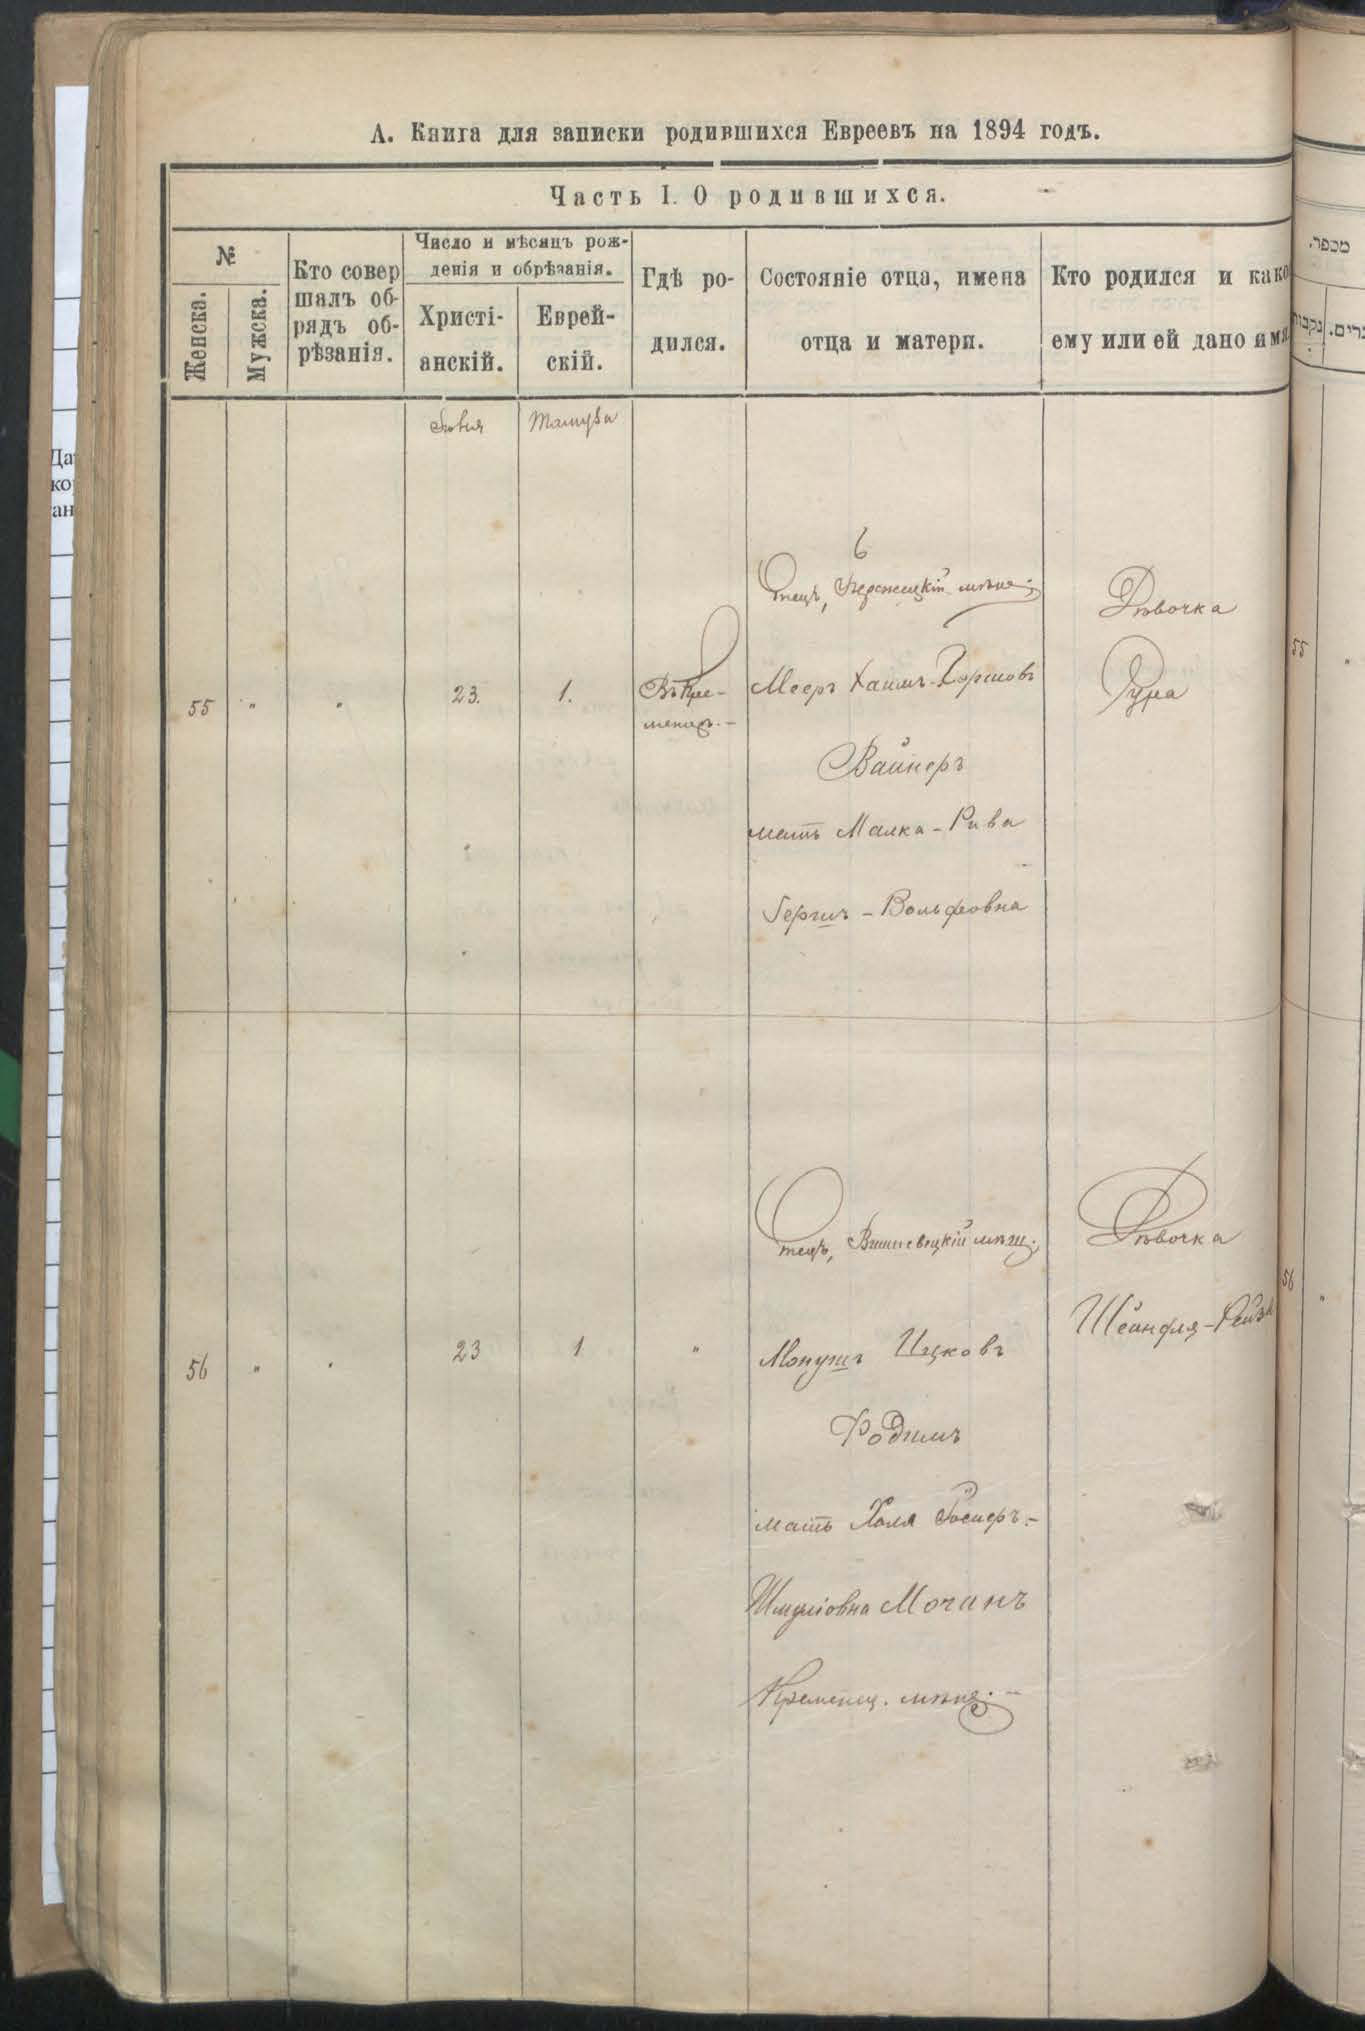 А. Книга для записки родившихся Евреевъ на 1894 годъ.
Часть I. О родившихся.
№
Женска.
Мужска.
Кто совер
шалъ об-
рядъ об-
рѣзанія.
Число и мѣсяцъ рож-
денія и обрѣзанія.
Христі-
анскій.
Еврей-
скій.
Гдѣ ро-
дился.
Состояніе отца, имена
отца и матери.
Кто родился и како
ему или ей дано имя
Іюня
Тамуза
55
"
"
23.
1.
Въ Кре-
менцѣ.-
Отецъ, мѣщ.
Мееръ Хаимъ-Гершовъ
Вайнеръ
мать Малка-Рива
Герщъ-Вольфовна
Дѣвочка
Сура
56
"
"
23
1
"
Отецъ, Вишневецкій мѣщ.,
Ицковъ
мать
Шмулiовна Мочанъ
Кременец. мѣщ.-
Дѣвочка
Шейндля-Рейзя
Да
ко
ан
מספר.
נקבות
רים.
55
"
56
"